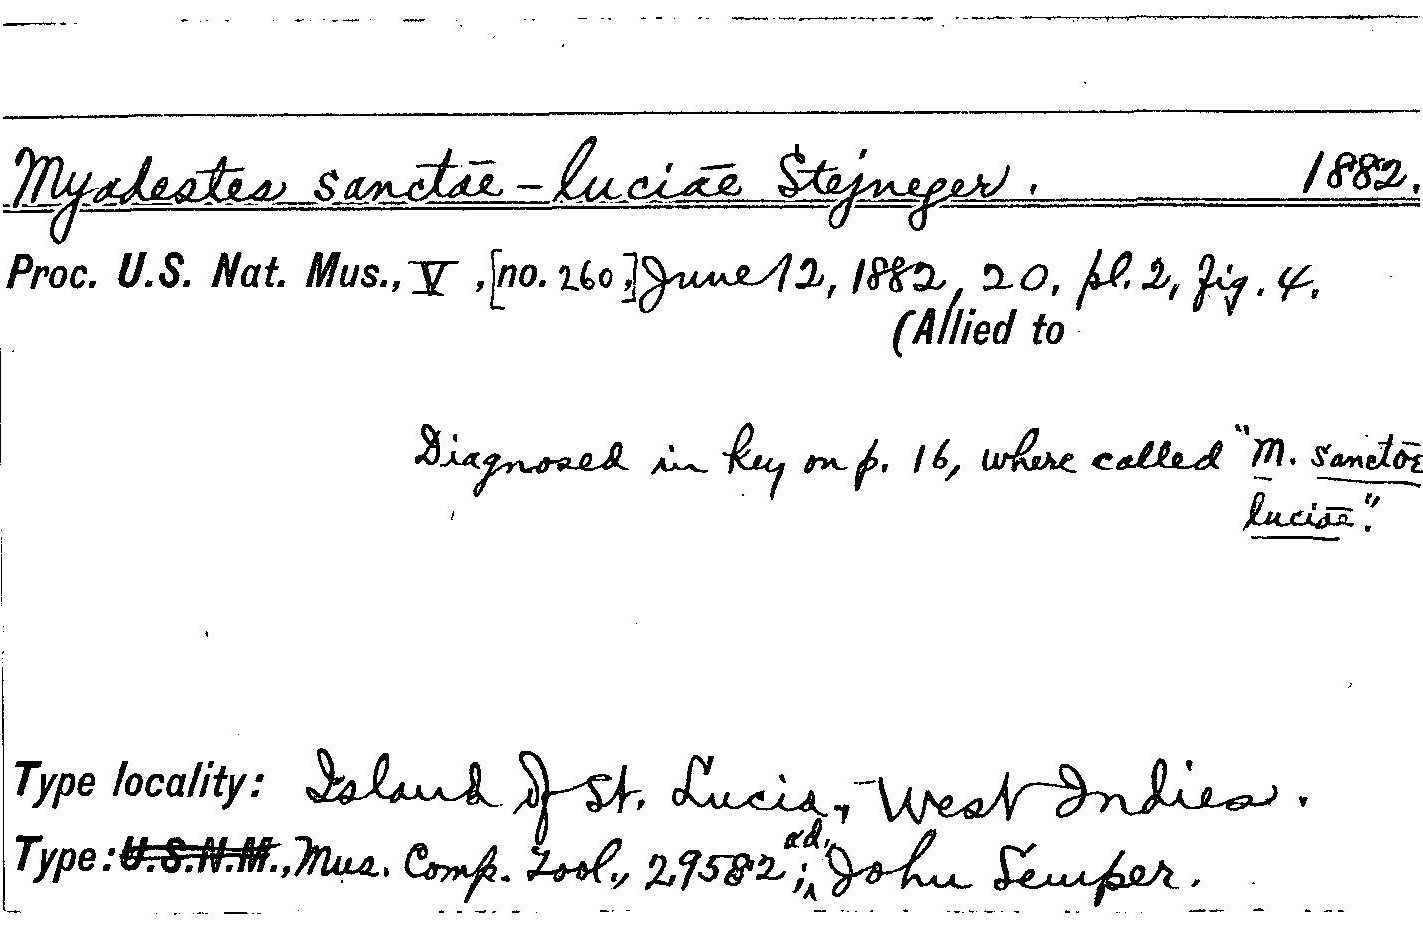 Myadestes sanctae-luciae Stejneger. 1882.
Proc. U.S. Nat. Mus., V, [no. 260,] June 12, 1882, 20, pl. 2, fig. 4.
(Allied to
Diagnosed in key on p. 16, where called "M. sanctae
luciae".
Type locality: Island of St. Lucia, West Indies.
Type: U.S.N.M., Mus. Comp. Zool., 29582; ad., John Semper.